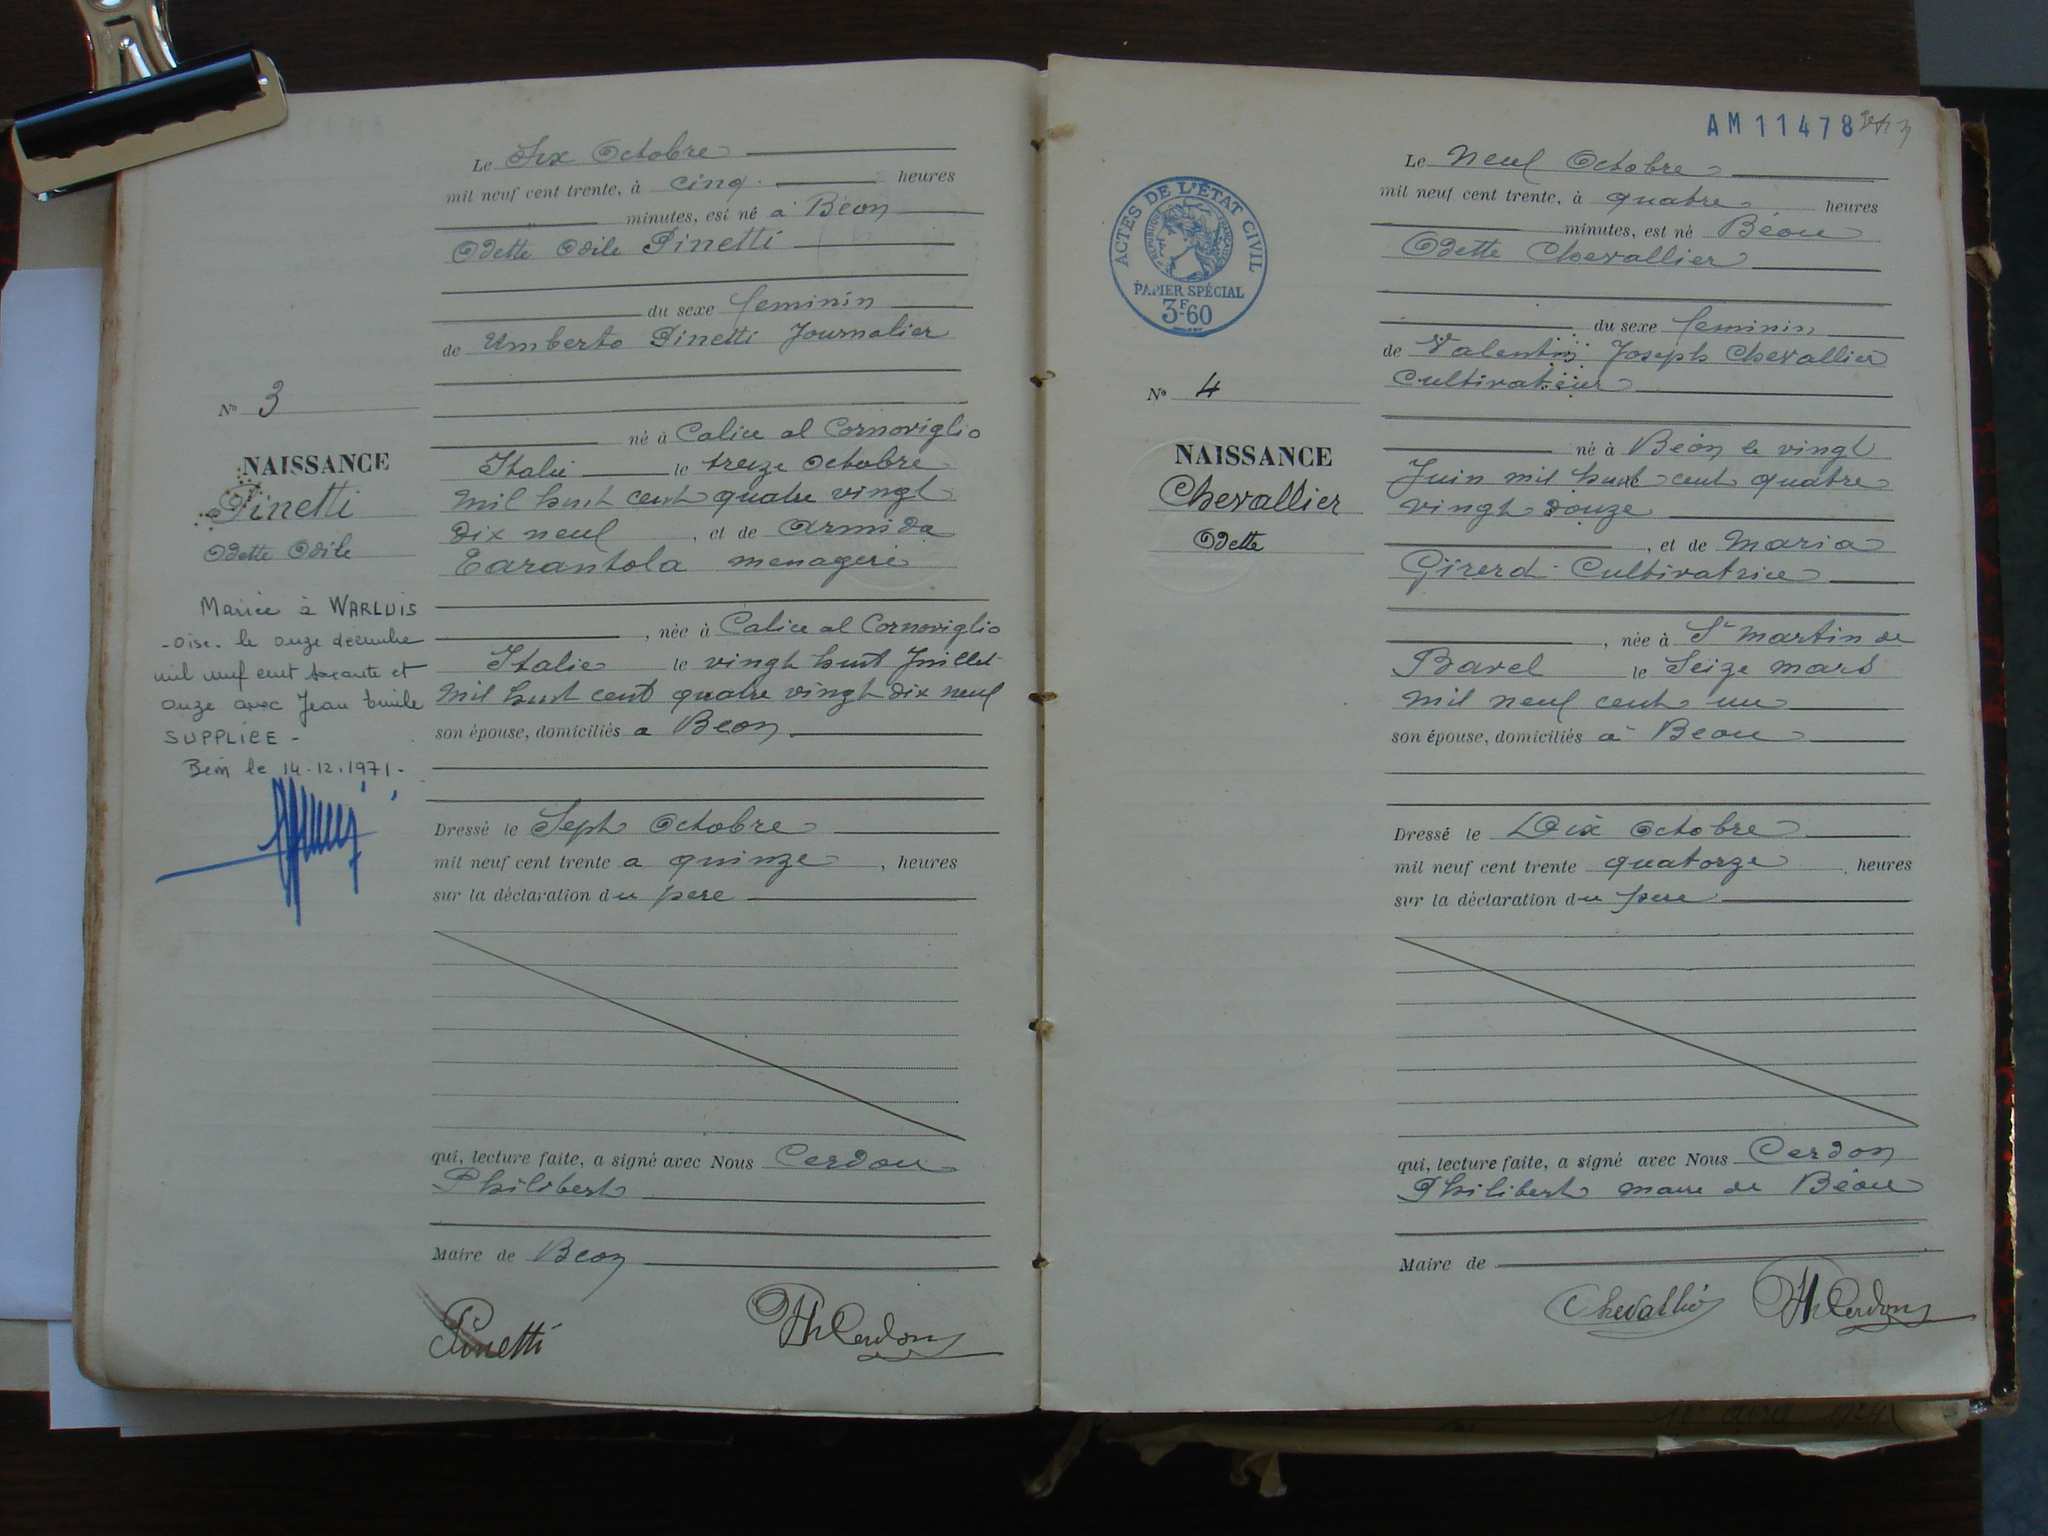 Le Six Octobre
mil neuf cent trente, à cinq heures
minutes, est né à Béon
Odette Odile Pinetti
du sexe feminin
de Umberto Pinetti Journalier
né à Calice al Cornoviglio
Italie le treize Octobre
mil huit cent quatre vingt
dix neuf, et de Armida
Tarantola menagere
, née à Calice al Cornoviglio
Italie le vingt huit Juillet
mil huit cent quatre vingt dix neuf
son épouse, domiciliés a Beon
Dressé le Sept Octobre
mil neuf cent trente a quinze, heures
sur la déclaration du pere
qui, lecture faite, a signé avec Nous Cerdon
Philibert
Maire de Beon
Pinetti
Ph Cerdon
No 3
NAISSANCE
Pinetti
Odette Odile
Mariée à WARLUIS
-Oise- le onze décembre
mil neuf cent soixante et
onze avec Jean Emile
SUPPLICE -
Béon le 14.12.1971.
AM11478
ACTES DE L'ÉTAT CIVIL
RÉPUBLIQUE FRANÇAISE
PAPIER SPÉCIAL
3F60
No 4
NAISSANCE
Chevallier
Odette
Le Neuf Octobre
mil neuf cent trente, à quatre heures
minutes, est né Béon
Odette Chevallier
du sexe feminin
de Valentin Joseph Chevallier
Cultivateur
né à Béon le vingt
Juin mil huit cent quatre
vingt douze
, et de Maria
Girerd Cultivatrice
, née à St Martin de
Bavel le Seize mars
mil neuf cent un
son épouse, domiciliés à Beon
Dressé le Dix Octobre
mil neuf cent trente quatorze, heures
sur la déclaration du pere
qui, lecture faite, a signé avec Nous Cerdon
Philibert maire de Béon
Maire de
Chevallier
Ph Cerdon